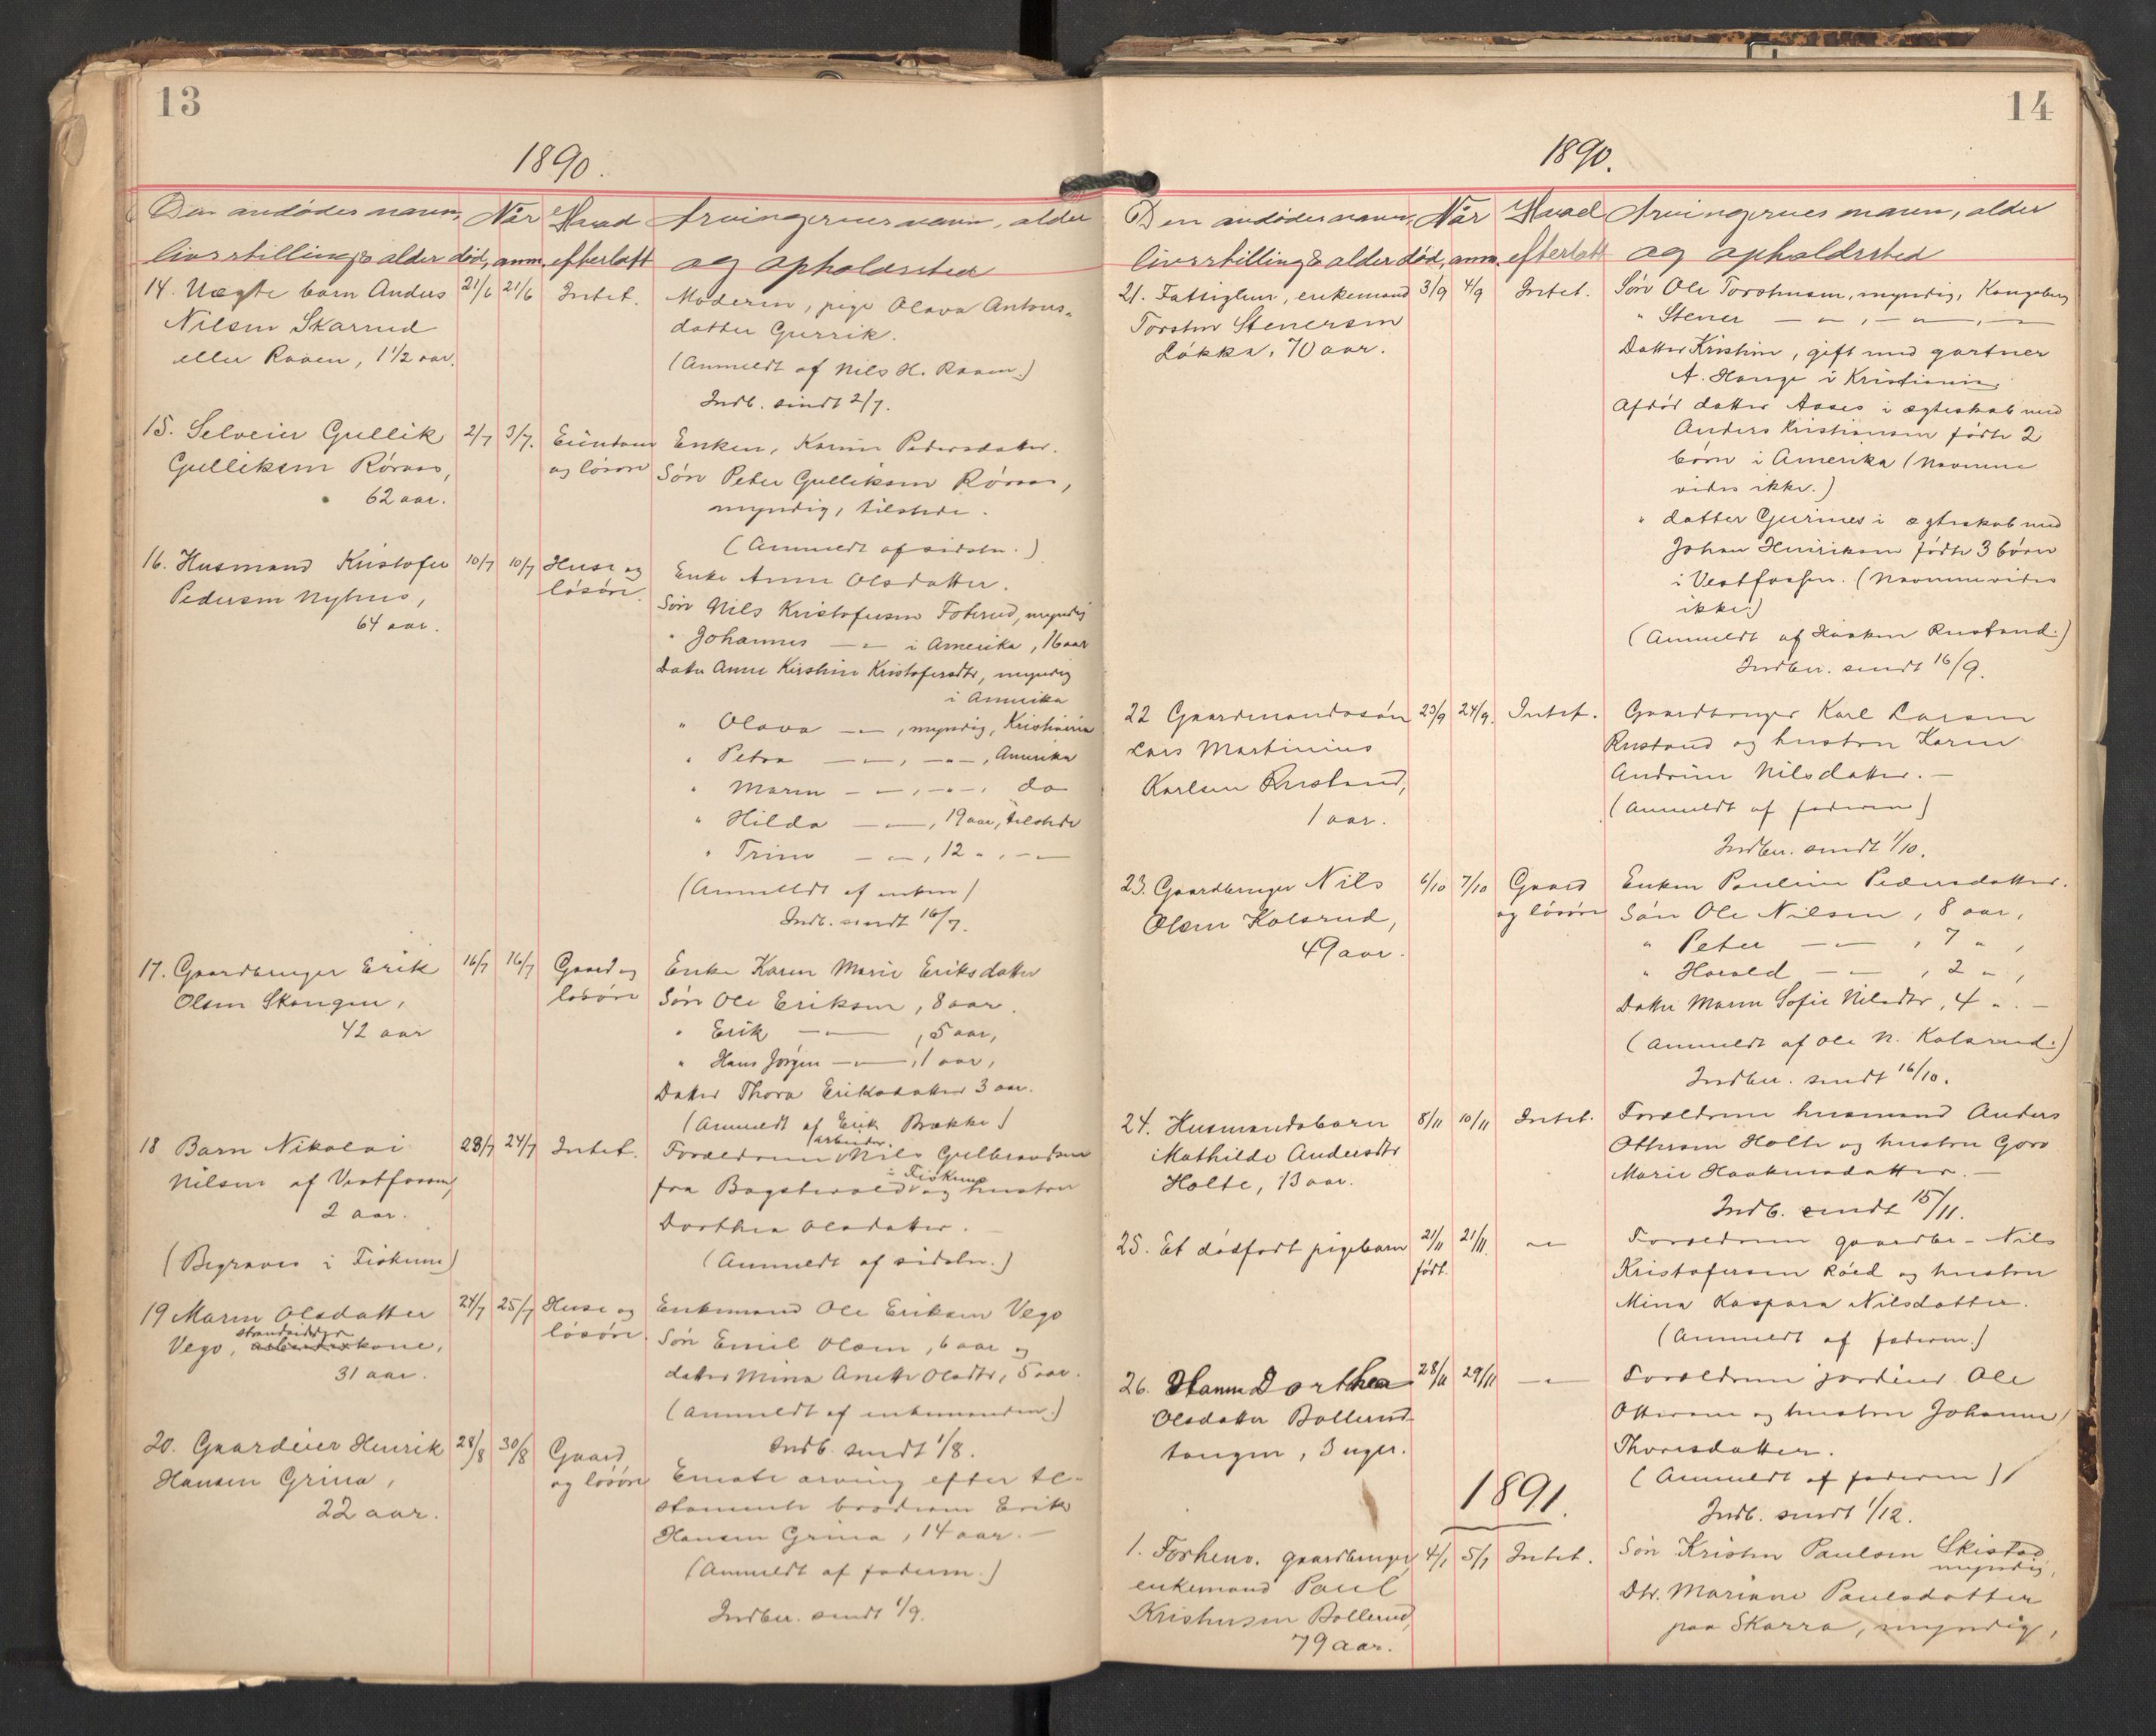 13
1890.
Den andødes navn, Når Hvad Arvingernes navn, alder
livsstilling & alder død, anm. efterlatt og opholdssted
14. Uægte barn Anders 21/6 21/6 Intet. Moderen, pige Olava Antons-
Nilsen Skarrud datter Gurrik.
eller Raaen, 1 1/2 aar. (Anmeldt af Nils H. Raaen.)
Indb. sendt 2/7.
15. Selveier Gullik 2/7 3/7. Eiendom Enken, Karen Pedersdatter.
Gulliksen Röraas, og lösöre Sön Peter Gulliksen Röraas,
62 aar. myndig, tilstede.
(Anmeldt af sidstn.)
16. Husmand Kristofer 10/7 10/7 Huse og Enke Anne Olsdatter.
Pedersen Nyhus, lösöre. Sön Nils Kristofersen Foterud, myndig
64 aar. " Johannes — " — i Amerika, 16 aar
Datter Anne Kirstine Kristofersdtr, myndig
i Amerika
" Olava — " —, myndig, Kristiania
" Petra — " —, — " —, Amerika
" Maren — " —, — " —, do
" Hilda — " —, 19 aar, tilstede
" Trine — " —, 12 ", — " —
(Anmeldt af enken)
Indb. sendt 16/7.
17. Gaardbruger Erik 16/7 16/7 Gaard og Enke Karen Marie Eriksdatter
Olsen Skangen, lösöre Sön Ole Eriksen, 8 aar.
42 aar " Erik — " —, 5 aar,
" Hans Jörgen — " —, 1 aar,
Datter Thora Eriksdatter 3 aar.
(Anmeldt af Erik Brække)
18 Barn Nikolai 23/7 24/7 Intet. Forældrene arbeider Nils Gulbrandsen
Nilsen af Vestfossen, fra i Fiskum og hustru
2 aar. Dorthea Olsdatter.
(Begraves i Fiskum) (Anmeldt af sidstn.)
19 Maren Olsdatter 24/7 25/7 Huse og Enkemand Ole Eriksen Vego
Vego, strandsidder arbeiderkone, lösöre. Sön Emil Olsen, 6 aar og
31 aar. datter Mina Anette Olsdtr, 5 aar.
(Anmeldt af enkemanden.)
Indb. sendt 1/8.
20. Gaardeier Henrik 28/8 30/8 Gaard Eneste arving efter te-
Hansen Grina, og lösöre stamente broderen Erik
22 aar. Hansen Grina, 14 aar. —
(Anmeldt af faderen.)
Indber. sendt 1/9.
14
1890.
Den andødes navn, Når Hvad Arvingernes navn, alder
livsstilling & alder død, anm. efterlatt og opholdssted
21. Fattiglem, enkemand 3/9 4/9 Intet. Sön Ole Torstensen, myndig, Kongsberg
Torsten Stenersen " Stener — " —, — " —, —
Løkka, 70 aar. Datter Kristine, gift med gartner
A. Hauge i Kristiania.
Afdöd datter Aases i ægteskab med
Anders Kristiansen födte 2
börn i Amerika (Navnene
vides ikke.)
" datter Gurines i ægteskab med
Johan Henriksen födte 3 börn
i Vestfossen. (Navnene vides
ikke.)
(Anmeldt af Haaken Rustand.)
Indber. sendt 16/9.
22 Gaardmandssön 23/9 24/9. Intet. Gaardbruger Karl Larsen
Lars Martinius Rustand og hustru Karen
Karlsen Rustand, Andrine Nilsdatter. —
1 aar. (Anmeldt af faderen)
Indber. sendt 1/10.
23. Gaardbruger Nils 6/10 7/10 Gaard Enken Pauline Pedersdatter.
Olsen Kolsrud, og lösöre Sön Ole Nilsen, 8 aar,
49 aar. " Peter — " —, 7 ",
" Harald — " —, 2 ",
Datter Maren Sofie Nilsdtr, 4 ". —
(Anmeldt af Ole N. Kolsrud.)
Indber. sendt 16/10.
24. Husmandsbarn 8/11 10/11 Intet. Forældrene husmand Anders
Mathilde Andersdtr Ottersen Holte og hustru Goro
Holte, 13 aar. Marie Haakensdatter. —
Indb. sendt 15/11.
25. Et dödfödt pigebarn 21/11 21/11. — " — Forældrene gaardbr. Nils
födt. Kristofersen Röed og hustru
Mina Kaspara Nilsdatter.
(Anmeldt af faderen.)
26. Hanna Dorthea 28/11 29/11 — " — Forældrene jordeier Ole
Olsdatter Bollerud- Ottersen og hustru Johanne
tangen, 3 uger. Thoresdatter.
(Anmeldt af faderen)
Indb. sendt 1/12.
1891.
1. Forhenv. gaardbruger, 4/1 5/1 Intet. Sön Kristen Paulsen Skistad
enkemand Paul myndig,
Kristensen Bollerud, Dtr. Mariane Paulsdatter
79 aar. paa Skarra, myndig,